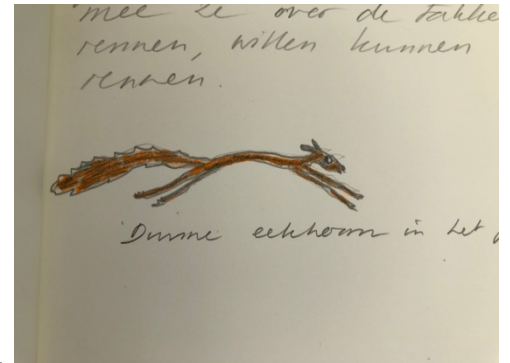 mee ze over de takke
rennen, willen kunnen
rennen.
Dunne eekhoorn in het